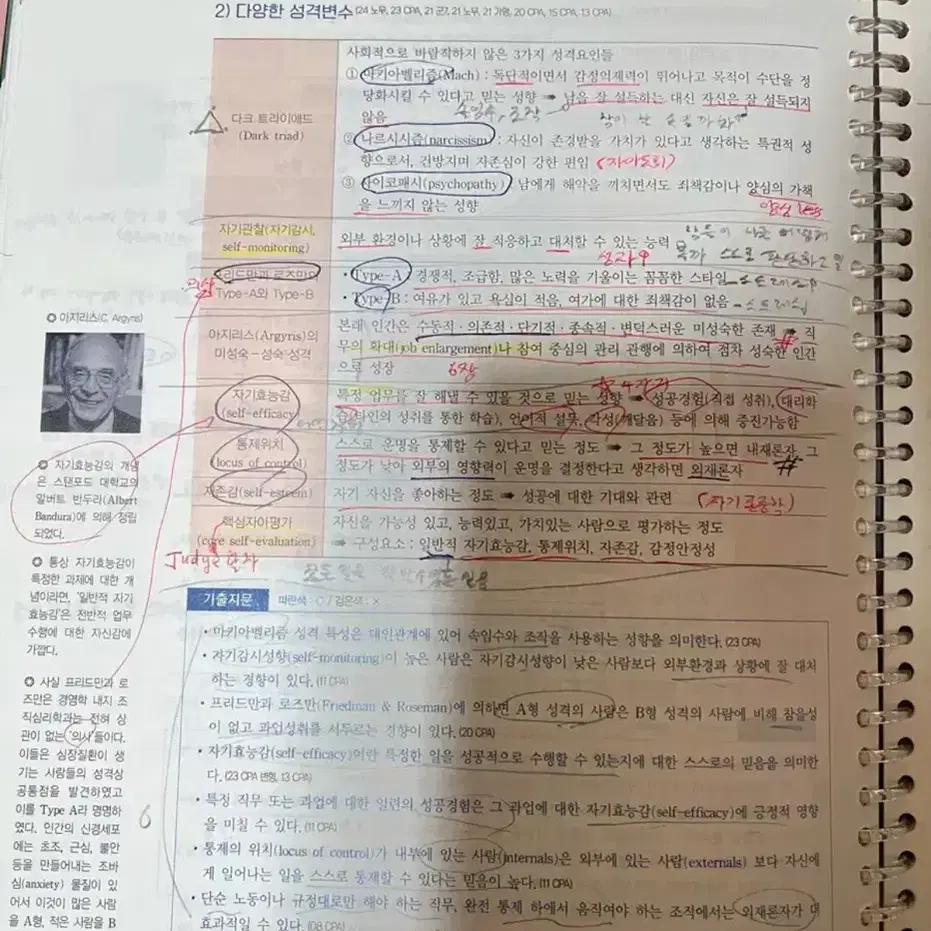 2) 다양한 성격변수 (24 노무, 23 CPA, 21 군7, 21 노무, 21 가맹, 20 CPA, 15 CPA, 13 CPA)
다크 트라이애드
(Dark triad)
사회적으로 바람직하지 않은 3가지 성격요인들
① 마키아벨리즘(Mach) : 독단적이면서 감정의제력이 뛰어나고 목적이 수단을 정
당화시킬 수 있다고 믿는 성향 ➡ 남을 잘 설득하는 대신 자신은 잘 설득되지
않음
속임수, 조작
② 나르시시즘(narcissism) : 자신이 존경받을 가치가 있다고 생각하는 특권적 성
향으로서, 건방지며 자존심이 강한 편임 (자아도취)
③ 사이코패시(psychopathy) : 남에게 해악을 끼치면서도 죄책감이나 양심의 가책
을 느끼지 않는 성향
양심 less
자기관찰(자기감시,
self-monitoring)
외부 환경이나 상황에 잘 적응하고 대처할 수 있는 능력
의사
프리드만과 로즈만의
Type-A와 Type-B
• Type-A : 경쟁적, 조급함, 많은 노력을 기울이는 꼼꼼한 스타일
• Type-B : 여유가 있고 욕심이 적음, 여가에 대한 죄책감이 없음
아지리스(Argyris)의
미성숙-성숙 성격
본래 인간은 수동적·의존적·단기적·종속적·변덕스러운 미성숙한 존재 ➡ 직
무의 확대(job enlargement)나 참여 중심의 관리 관행에 의하여 점차 성숙한 인간
으로 성장
6장
자기효능감
(self-efficacy)
특정 업무를 잘 해낼 수 있을 것으로 믿는 성향 ➡ 성공경험(직접 성취), 대리학
습(타인의 성취를 통한 학습), 언어적 설득, 각성(깨달음) 등에 의해 증진가능함
통제위치
(locus of control)
스스로 운명을 통제할 수 있다고 믿는 정도 ➡ 그 정도가 높으면 내재론자, 그
정도가 낮아 외부의 영향력이 운명을 결정한다고 생각하면 외재론자
자존감(self-esteem)
자기 자신을 좋아하는 정도 ➡ 성공에 대한 기대와 관련 (자기존중감)
핵심자아평가
(core self-evaluation)
자신을 가능성 있고, 능력있고, 가치있는 사람으로 평가하는 정도
➡ 구성요소 : 일반적 자기효능감, 통제위치, 자존감, 감정안정성
Judge 학자
아지리스(C. Argyris)
자기효능감의 개념
은 스탠포드 대학교의
앨버트 반두라(Albert
Bandura)에 의해 정립
되었다.
통상 자기효능감이
특정한 과제에 대한 개
념이라면, '일반적 자기
효능감'은 전반적 업무
수행에 대한 자신감에
가깝다.
사실 프리드만과 로
즈만은 경영학 내지 조
직심리학과는 전혀 상
관이 없는 '의사'들이다.
이들은 심장질환이 생
기는 사람들의 성격상
공통점을 발견하였고
이를 Type A라 명명하
였다. 인간의 신경세포
에는 초조, 근심, 불안
등을 만들어내는 조바
심(anxiety) 물질이 있
어서 이것이 많은 사람
을 A형, 적은 사람을 B
기출지문 파란색 : ○ / 검은색 : ×
• 마키아벨리즘 성격 특성은 대인관계에 있어 속임수와 조작을 사용하는 성향을 의미한다. (23 CPA)
• 자기감시성향(self-monitoring)이 높은 사람은 자기감시성향이 낮은 사람보다 외부환경과 상황에 잘 대처
하는 경향이 있다. (11 CPA)
• 프리드만과 로즈만(Friedman & Roseman)에 의하면 A형 성격의 사람은 B형 성격의 사람에 비해 참을성
이 없고 과업성취를 서두르는 경향이 있다. (20 CPA)
• 자기효능감(self-efficacy)이란 특정한 일을 성공적으로 수행할 수 있는지에 대한 스스로의 믿음을 의미한
다. (23 CPA 변형, 13 CPA)
• 특정 직무 또는 과업에 대한 일련의 성공경험은 그 과업에 대한 자기효능감(self-efficacy)에 긍정적 영향
을 미칠 수 있다. (11 CPA)
• 통제의 위치(locus of control)가 내부에 있는 사람(internals)은 외부에 있는 사람(externals) 보다 자신에
게 일어나는 일을 스스로 통제할 수 있다는 믿음이 높다. (11 CPA)
• 단순 노동이나 규정대로만 해야 하는 직무, 완전 통제 하에서 움직여야 하는 조직에서는 외재론자가 더
효과적일 수 있다. (08 CPA)